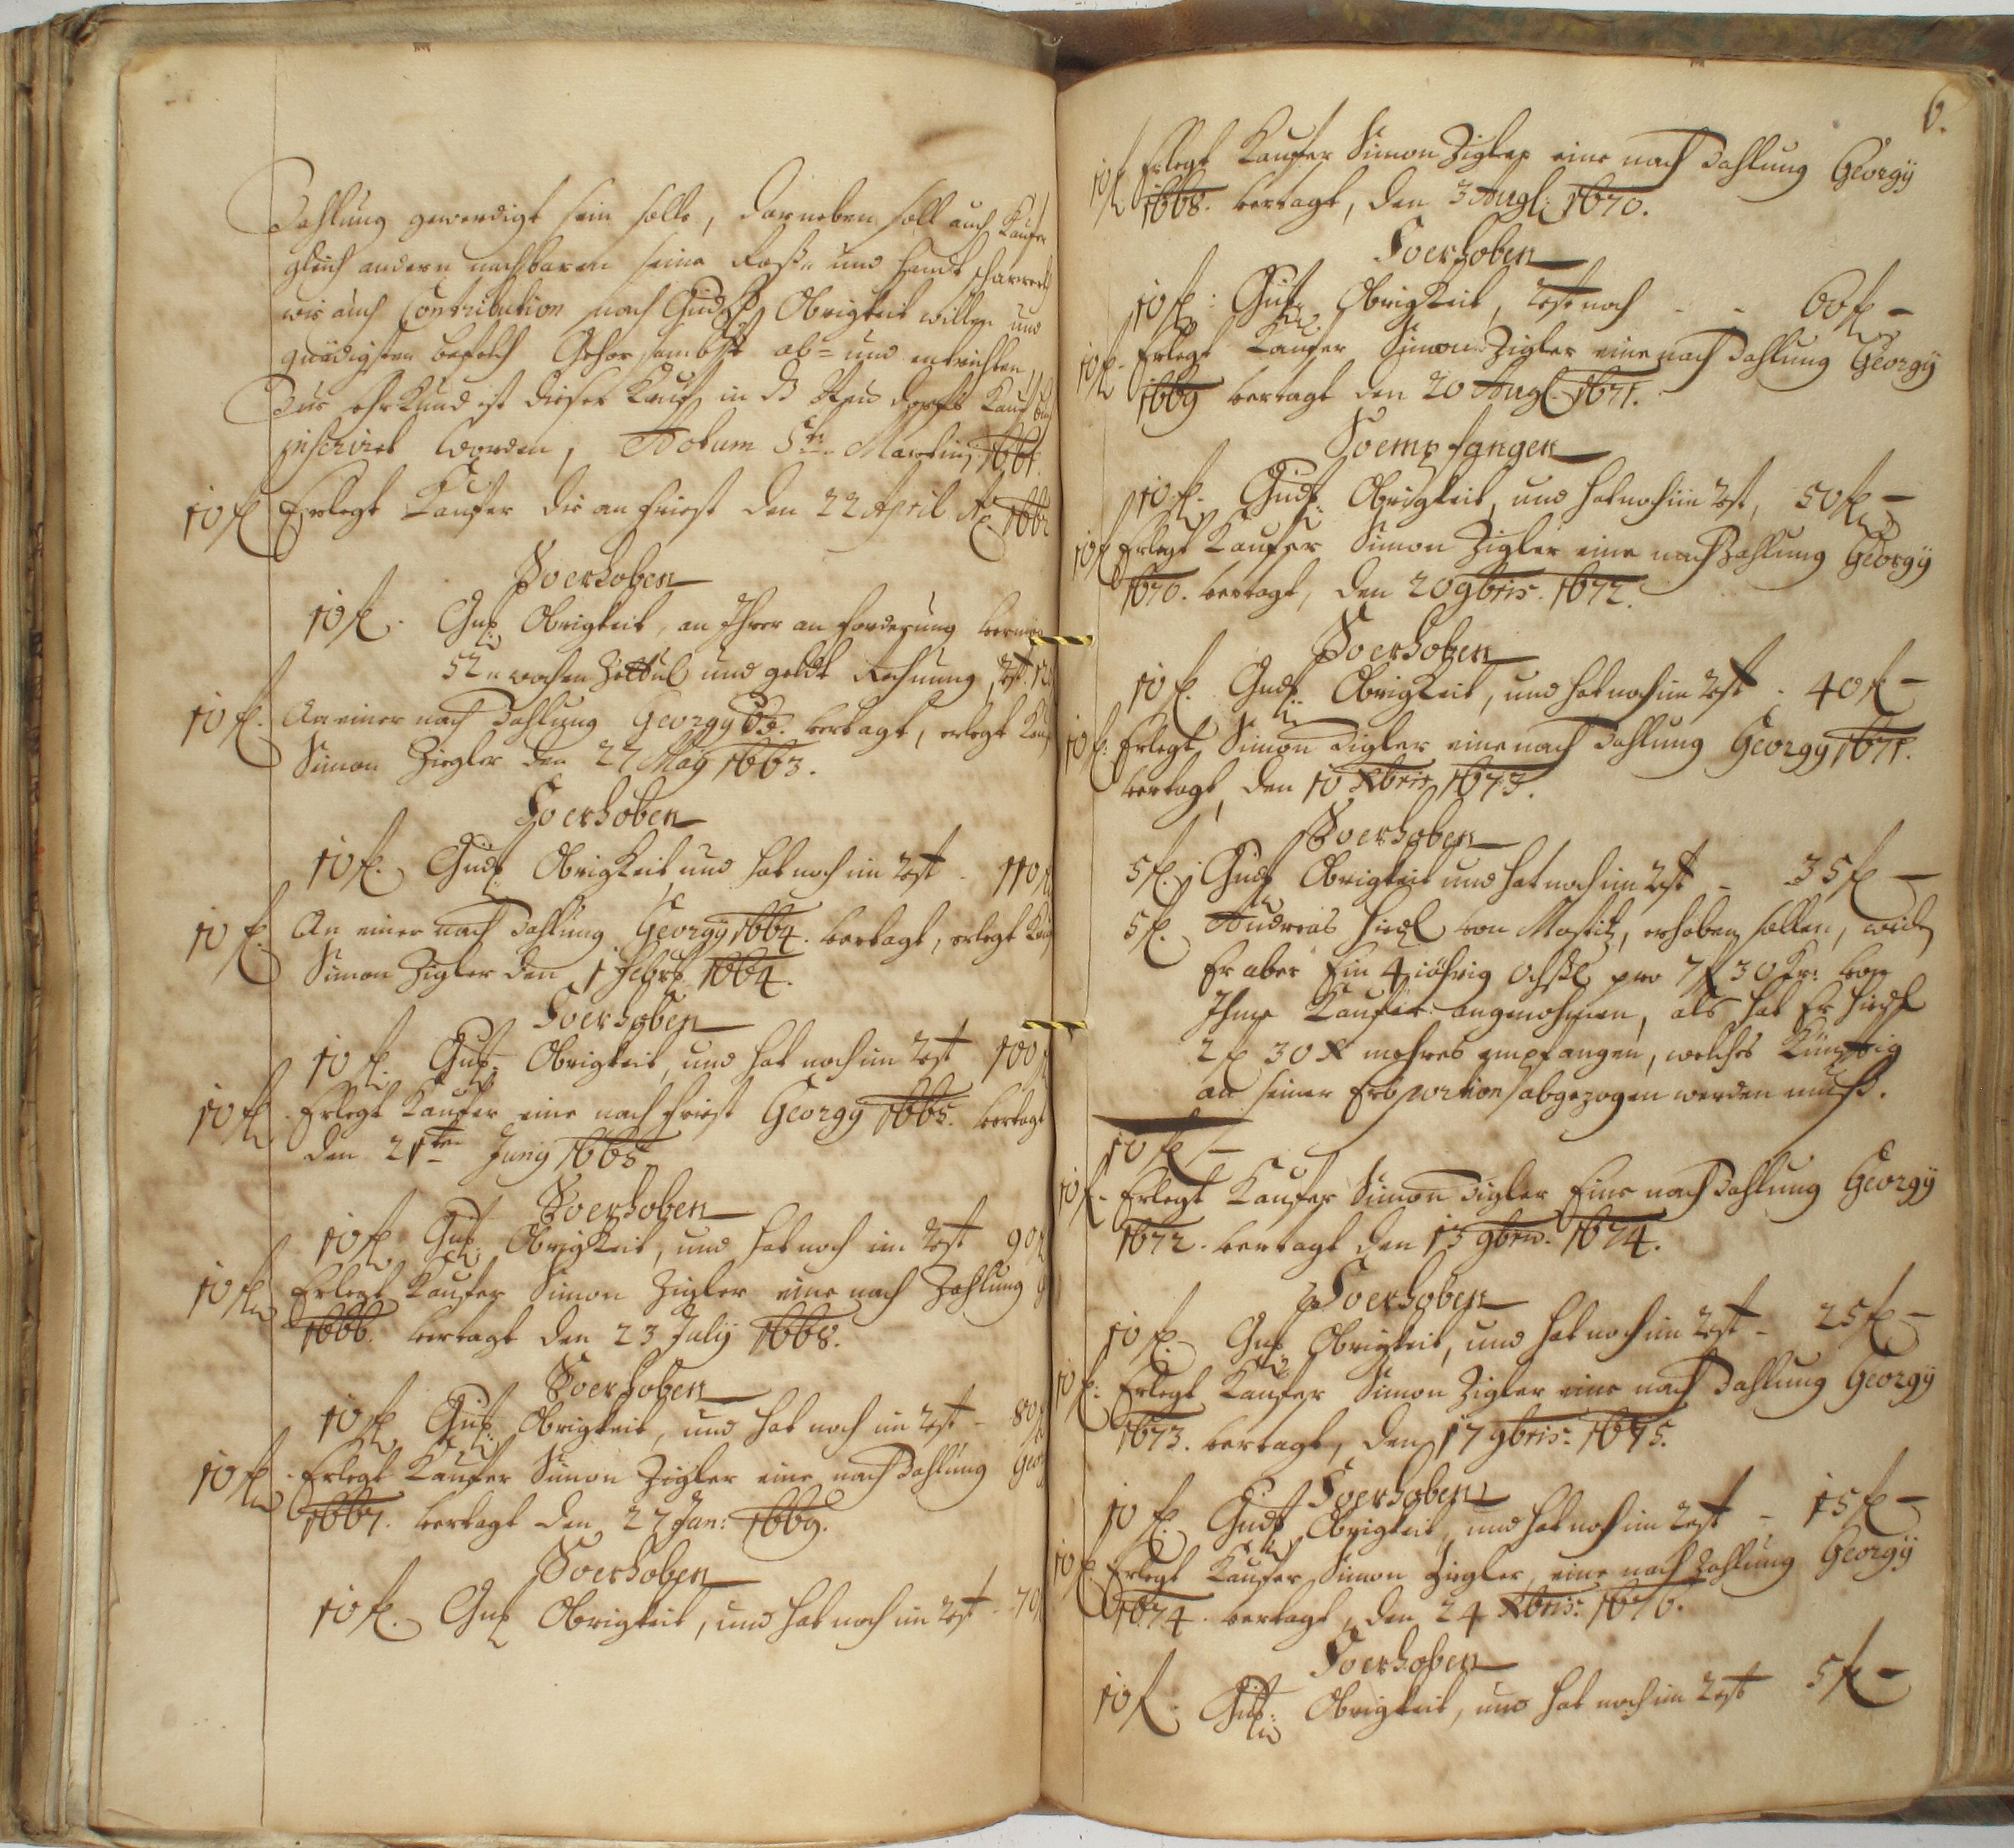 Zahlung gewerdigt sein solle, darneben soll auch Kaufer
gleich andern nachbarn seine Roß- und handt scharwerch
wie auch Contribution nach Gnd: Obrigkeit willen und
gnädigsten befelch Gehorsambst ab- und entrichten,
Zur uhrkund ist dieser Kauf in Kauf
inscrirt worden, Actum St: Martini 1661.
10 fl Erlegt Kaufer die an friest den 22 April A: 1662
So erhoben
10 fl. Gn: Obrigkeit, an Ihrer an forderung vermög
52 wochen Zettul und geldt Rechnung, Rest. 12
10 fl. An einer nach Zahlung Georgy 63. vertagt, erlegt Kauf
Simon Ziegler den 27 May 1663.
So erhoben
10 fl. Gnd: Obrigkeit und hat noch im Rest - 110 fl
10 fl. An einer nach Zahlung Georgy 1664. vertagt, erlegt Kauf
Simon Zigler den 1 Febr: 1664.
So erhoben
10 fl. Gn: Obrigkeit, und hat noch im Rest 100 f
10 fl. Erlegt Kaufer eine nach friest Georgy 1665. vertagt
den 21ten Juny 1665.
So erhoben
10 fl Gn: Obrigkeit, und hat noch im Rest 90 f
10 fl Erlegt Kaufer Simon Zigler eine nach Zahlung G
1666. vertagt den 23 July 1668.
So erhoben
10 fl Gn: Obrigkeit, und hat noch im Rest - 80 f
10 fl. Erlegt Kaufer Simon Zigler eine nach Zahlung Geo
1667. vertagt den 27 Jan: 1669.
So erhoben
10 fl. Gn: Obrigkeit, und hat noch im Rest - 70
6.
10 fl Erlegt Kaufer Simon Zigler eine nach Zahlung Georgy
1668. vertagt, den 3 Aug: 1670.
So erhoben
10 fl: Gn: Obrigkeit, Rest noch - - 60 fl -
10 fl. Erlegt Kaufer Simon Zigler eine nach Zahlung Georgy
1669 vertagt den 20 Aug: 1671.
So empfangen
10 fl. Gnd: Obrigkeit, und hat noch im Rest, 50 fl -
10 fl Erlegt Kaufer Simon Zigler eine nach Zahlung Georgy
1670. vertagt, den 20 9bris. 1672.
So erhoben
10 fl. Gnd: Obrigkeit, und hat noch im Rest - 40 fl -
10 fl: Erlegt, Simon Zigler eine nach Zahlung Georgy 1671.
vertagt, den 10 Xbris 1673.
So erhoben
5 fl. Gnd: Obrigkeit und hat noch im Rest - 35 fl -
5 fl. Andreas hiedl von Mostitz, erhoben sollen, weil
Er aber Ein 4 iährig Ochsl pro 7 fl 30 Kr: von
Ihme Kaufer angenohmen, als hat Er hiedl
2 fl 30 X mehres empfangen, welches Künftig
an seiner Erb portion abgezogen werden muß.
10 fl -
10 fl. Erlegt Kaufer Simon Zigler Eine nach Zahlung Georgy
1672. vertagt den 13 9bris. 1674.
So erhoben
10 fl. Gn: Obrigkeit, und hat noch im Rest - 25 fl -
10 fl: Erlegt Kaufer Simon Zigler eine nach Zahlung Georgy
1673. vertagt, den 17 9bris: 1675.
So erhoben
10 fl. Gnd: Obrigkeit, und hat noch im Rest - 15 fl -
10 fl Erlegt Kaufer Simon Ziegler, eine nach Zahlung Georgy
1674. vertagt, den 24 Xbris: 1676.
So erhoben
10 fl. Gn: Obrigkeit, und hat noch im Rest 5 fl -